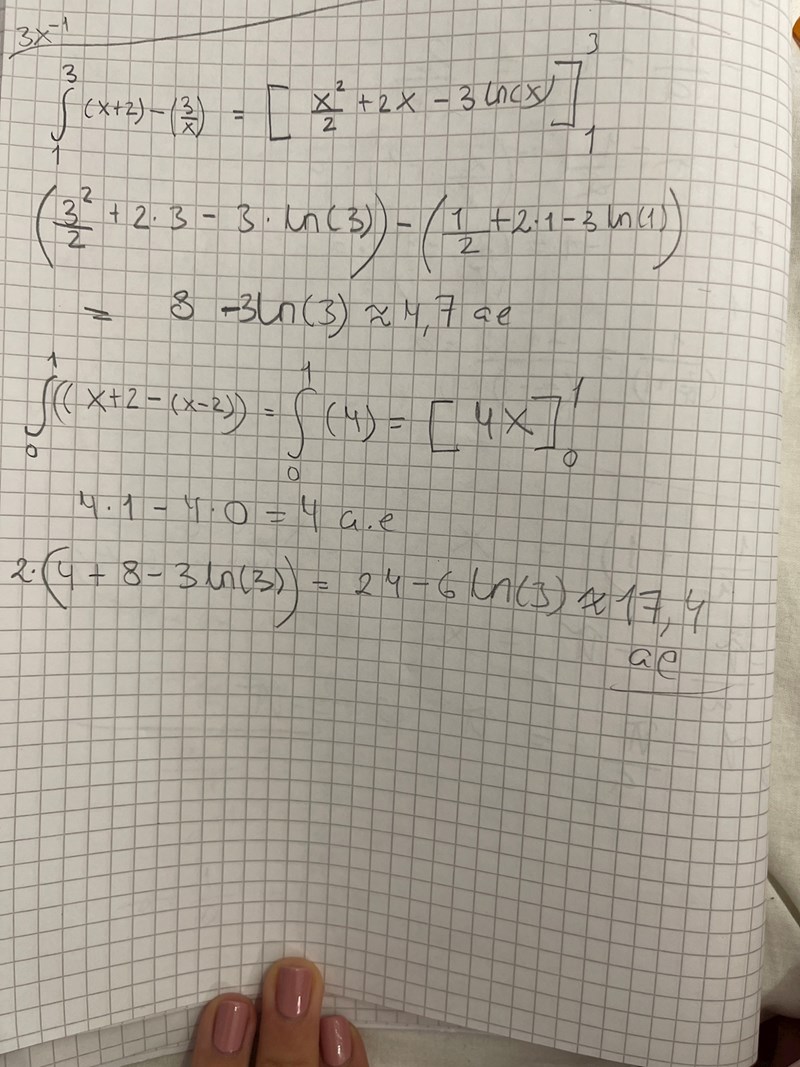 3x⁻¹
∫₁³ (x+2)-(3/x) = [x²/2 + 2x - 3 ln(x)]₁³
(3²/2 + 2·3 - 3·ln(3)) - (1/2 + 2·1 - 3 ln(1))
= 8 - 3ln(3) ≈ 4,7 ae
∫₀¹ ((x+2-(x-2)) = ∫₀¹ (4) = [4x]₀¹
4·1 - 4·0 = 4 a.e
2·(4 + 8 - 3ln(3)) = 24 - 6 ln(3) ≈ 17,4
ae